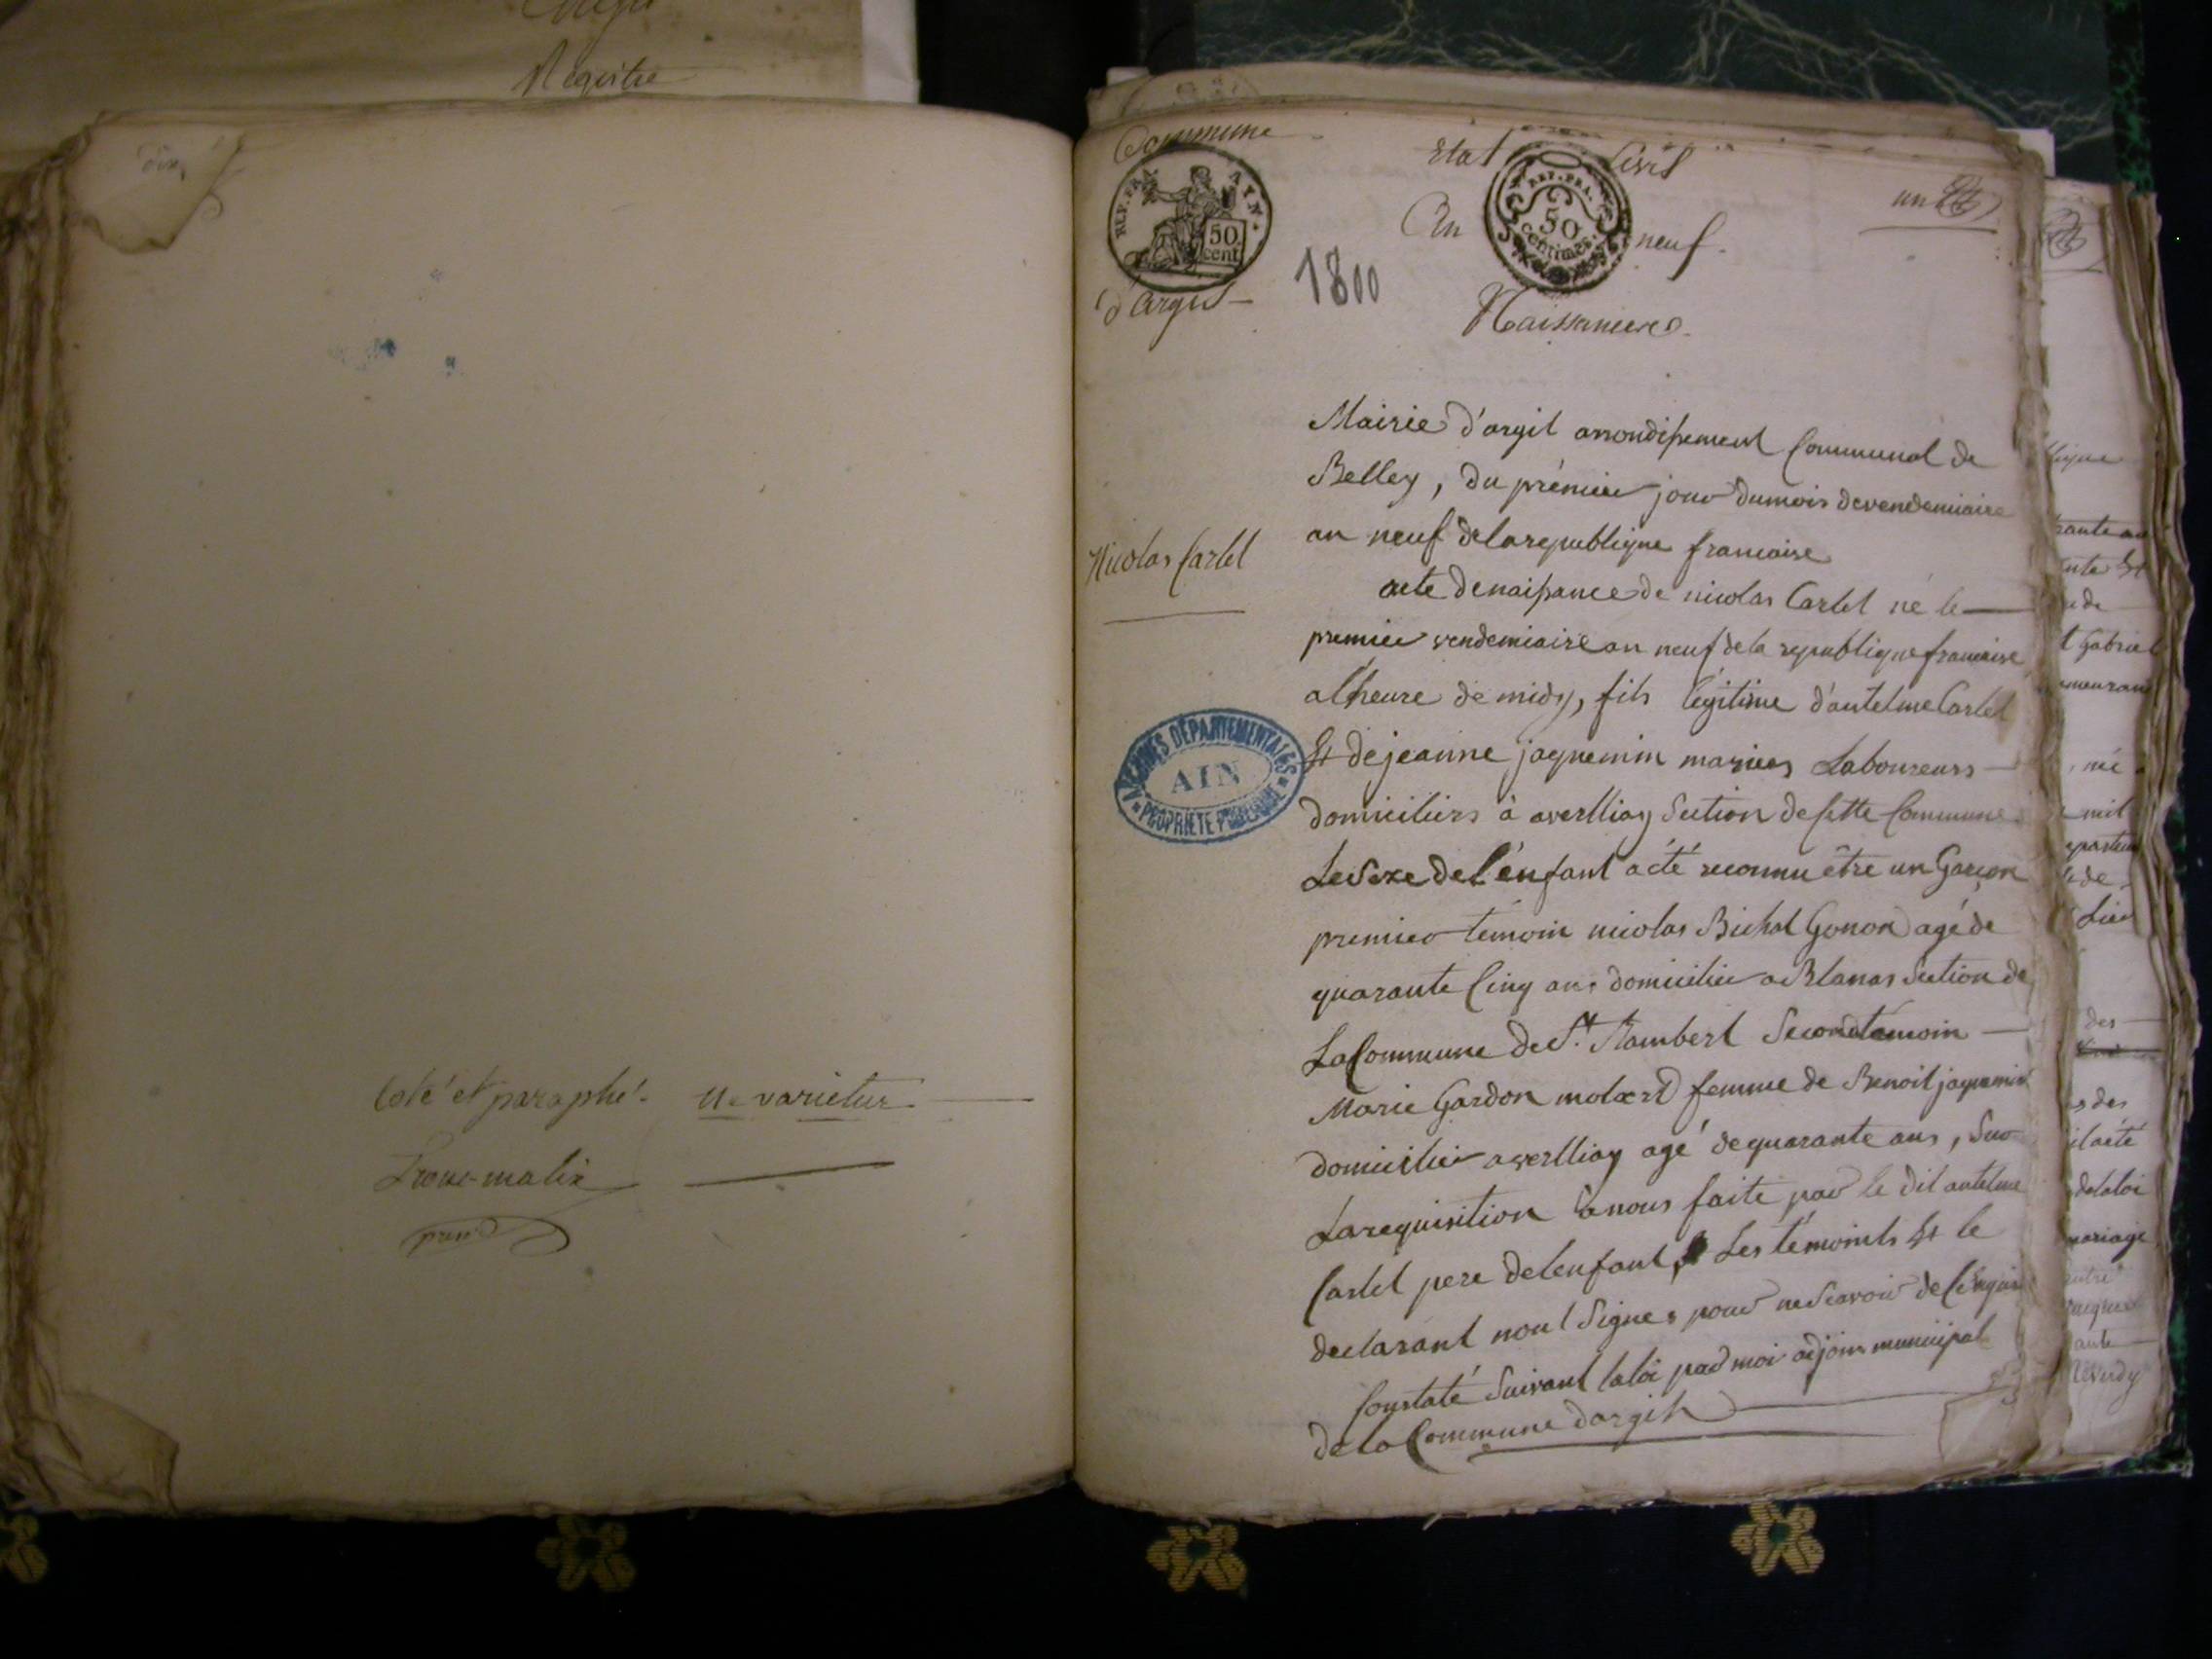 Registre
dix
Coté et paraphé. ne varietur.
Commune
Etat Civil
un
REP. FRA. AYN.
50 cent
REP. FRA.
50 centimes
An neuf.
d'argit
1800
Naissances.
Mairie d'argit arrondissement Communal de
Belley, du prémier jour du mois de vendemiaire
an neuf de la republique francaise
Nicolas Carlet
acte de naissance de nicolas Carlet né le
premier vendemiaire an neuf de la republique francaise
a l'heure de midy, fils légitime d'antelme Carlet
ARCHIVES DÉPARTEMENTALES
AIN
PROPRIÉTÉ PUBLIQUE
Et de jeanne jaquemin mariés Laboureurs
domiciliers à averlliay Section de Cette Commune
Le Sexe de l'énfant a été reconnu être un Garçon
premier témoin nicolas Bichat Gonon agé de
quarante Cinq ans domicilier a Blanas Section de
La Commune de St. Rambert Second témoin
Marie Gardon molard femme de Benoit jaquemin
domicilier a verlliay agé de quarante ans, Sur
La requisition a nous faite par le dit antelme
Carlet pere de l'enfant, Les témoints Et le
declarant nont Signes pour ne Scavoir de Ce requis
Constaté Suivant la loi par moi adjoint municipal
de la Commune dargit